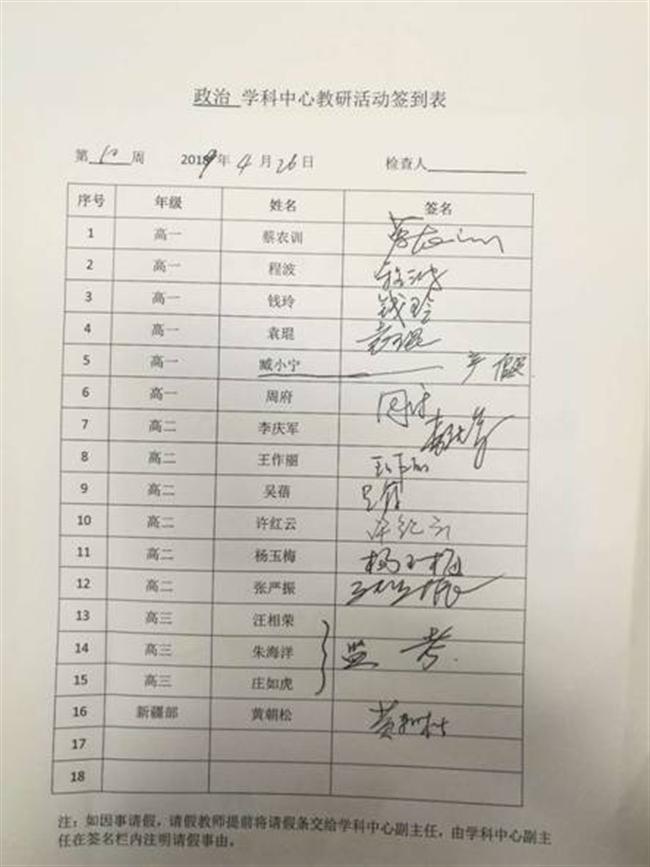 政治 学科中心教研活动签到表
第 10 周 2019年 4 月 26 日 检查人
序号 年级 姓名 签名
1 高一 蔡农训
2 高一 程波 程波
3 高一 钱玲 钱玲
4 高一 袁琨 袁琨
5 高一 臧小宁 产假
6 高一 周府 周府
7 高二 李庆军 李庆军
8 高二 王作丽 王作丽
9 高二 吴蓓 吴蓓
10 高二 许红云 许红云
11 高二 杨玉梅 杨玉梅
12 高二 张严振
13 高三 汪相荣
14 高三 朱海洋 监考
15 高三 庄如虎
16 新疆部 黄朝松 黄朝松
17
18
注：如因事请假，请假教师提前将请假条交给学科中心副主任，由学科中心副主
任在签名栏内注明请假事由。